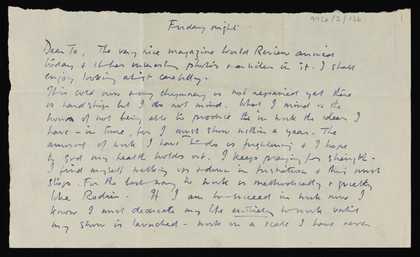 Friday night
9196/2/126
Dear To, The very nice magazine World Review arrived
today & it has interesting photos & articles in it. I shall
enjoy looking at it carefully.
It is cold over my chimney is not repaired yet there
is hardship but I do not mind. What I mind is the
horror of not being able to produce the in work the ideas I
have – in time, for I must show within a year. The
amount of work I have to do is frightening & I hope
to god my health holds out. I keep praying for strength.
I find myself walking up & down in frustration & this must
stop. For the best way to work is methodically & quietly
like Rodin. If I am to succeed in work now I
know I must dedicate my life entirely to work until
my show is launched – work on a scale I have never